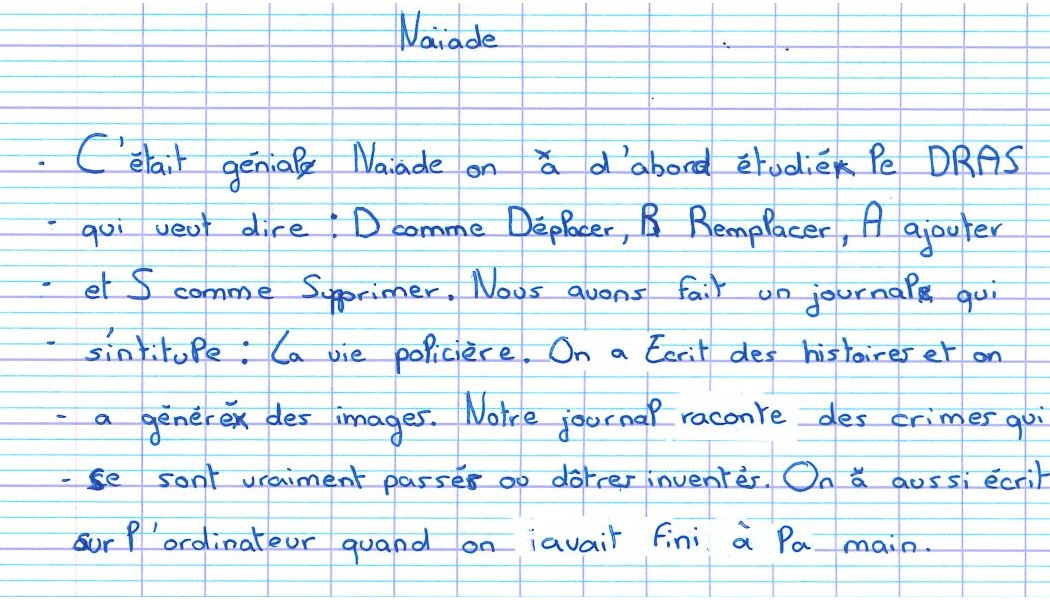 Naïade
- C'était génial Naiade on a d'abord étudié le DRAS
- qui veut dire : D comme Déplacer, R Remplacer, A ajouter
- et S comme Supprimer. Nous avons fait un journal qui
- s'intitule : La vie policière. On a Ecrit des histoires et on
- a généré des images. Notre journal raconte des crimes qui
- se sont vraiment passés ou dôtres inventés. On a aussi écrit
sur l'ordinateur quand on iavait fini à la main.